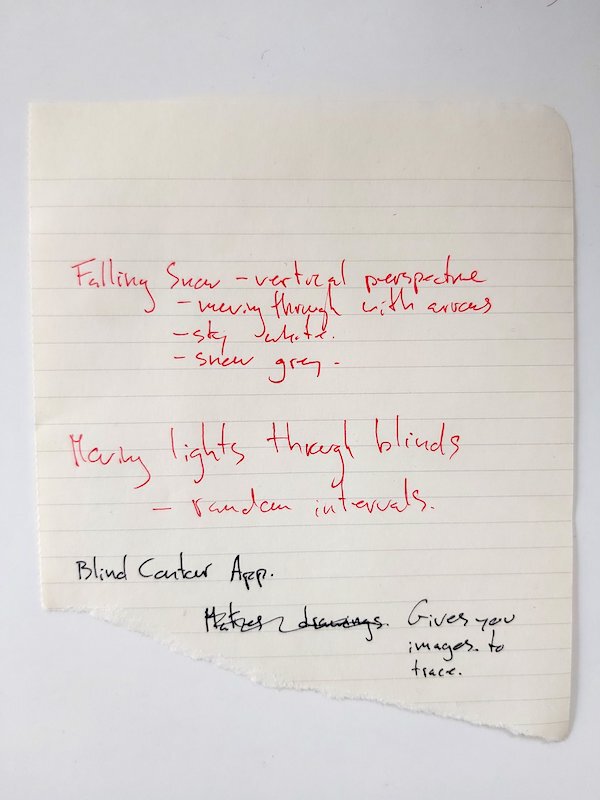 Falling Snow - vertical perspective
- moving through with arrows
- sky white.
- snow grey.
Moving lights through blinds
- random intervals.
Blind Contour App.
Makes drawings. Gives you
images. to
trace.